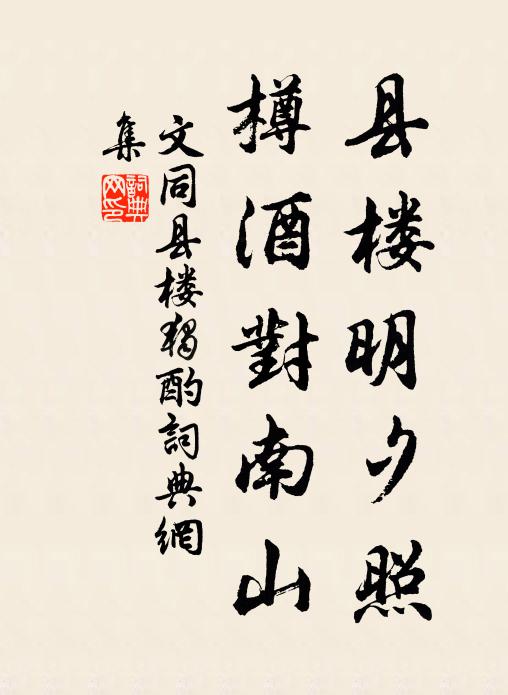 县楼明夕照
樽酒對南山
文同县楼独酌詞典網
集
詞典
网印